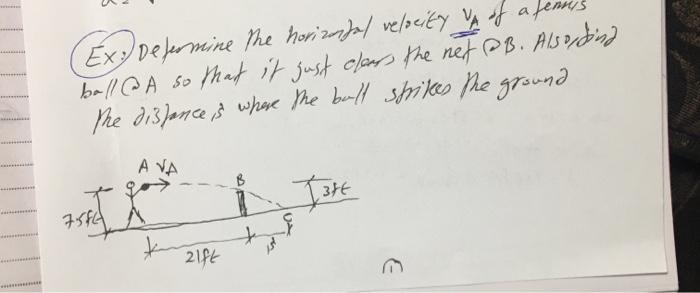 Ex: Determine the horizontal velocity VA of a tennis
ball @ A so that it just clears the net @ B. Also, find
the distance, s where the ball strikes the ground
A VA
B
3ft
7.5ft
C
21ft
s